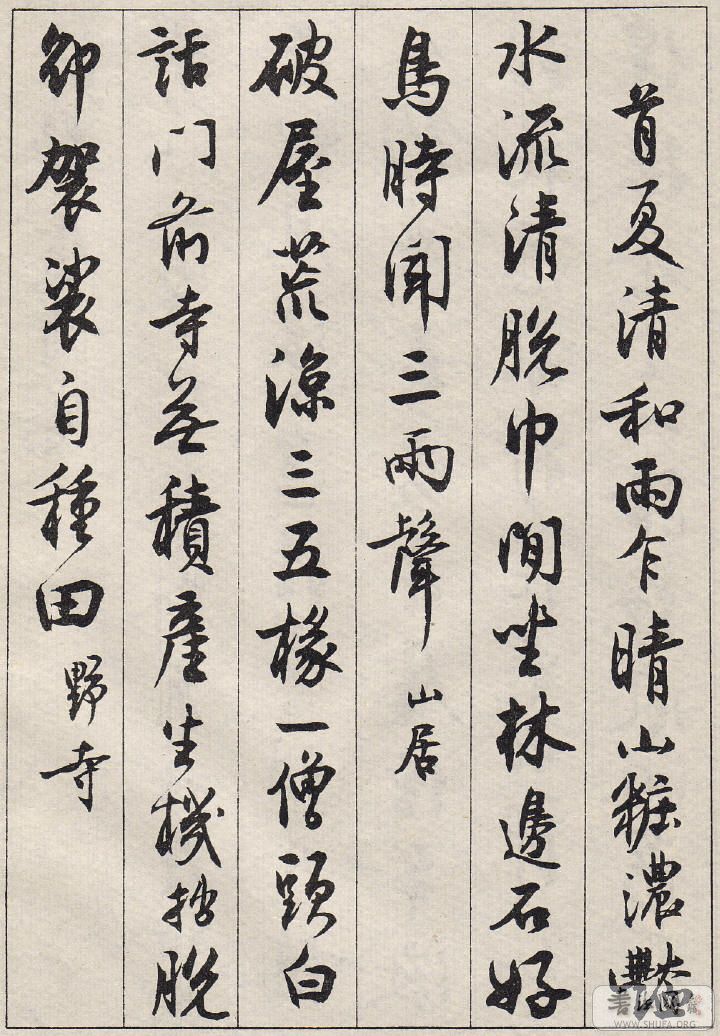 首夏清和雨乍晴山粧濃豔
水流清脫巾閒坐林邊石好
鳥時聞三兩聲 山居
破屋荒涼三五椽一僧頭白
話門前寺無積產生機拙脫
卻袈裟自種田 野寺
WWW.SHUFA.ORG